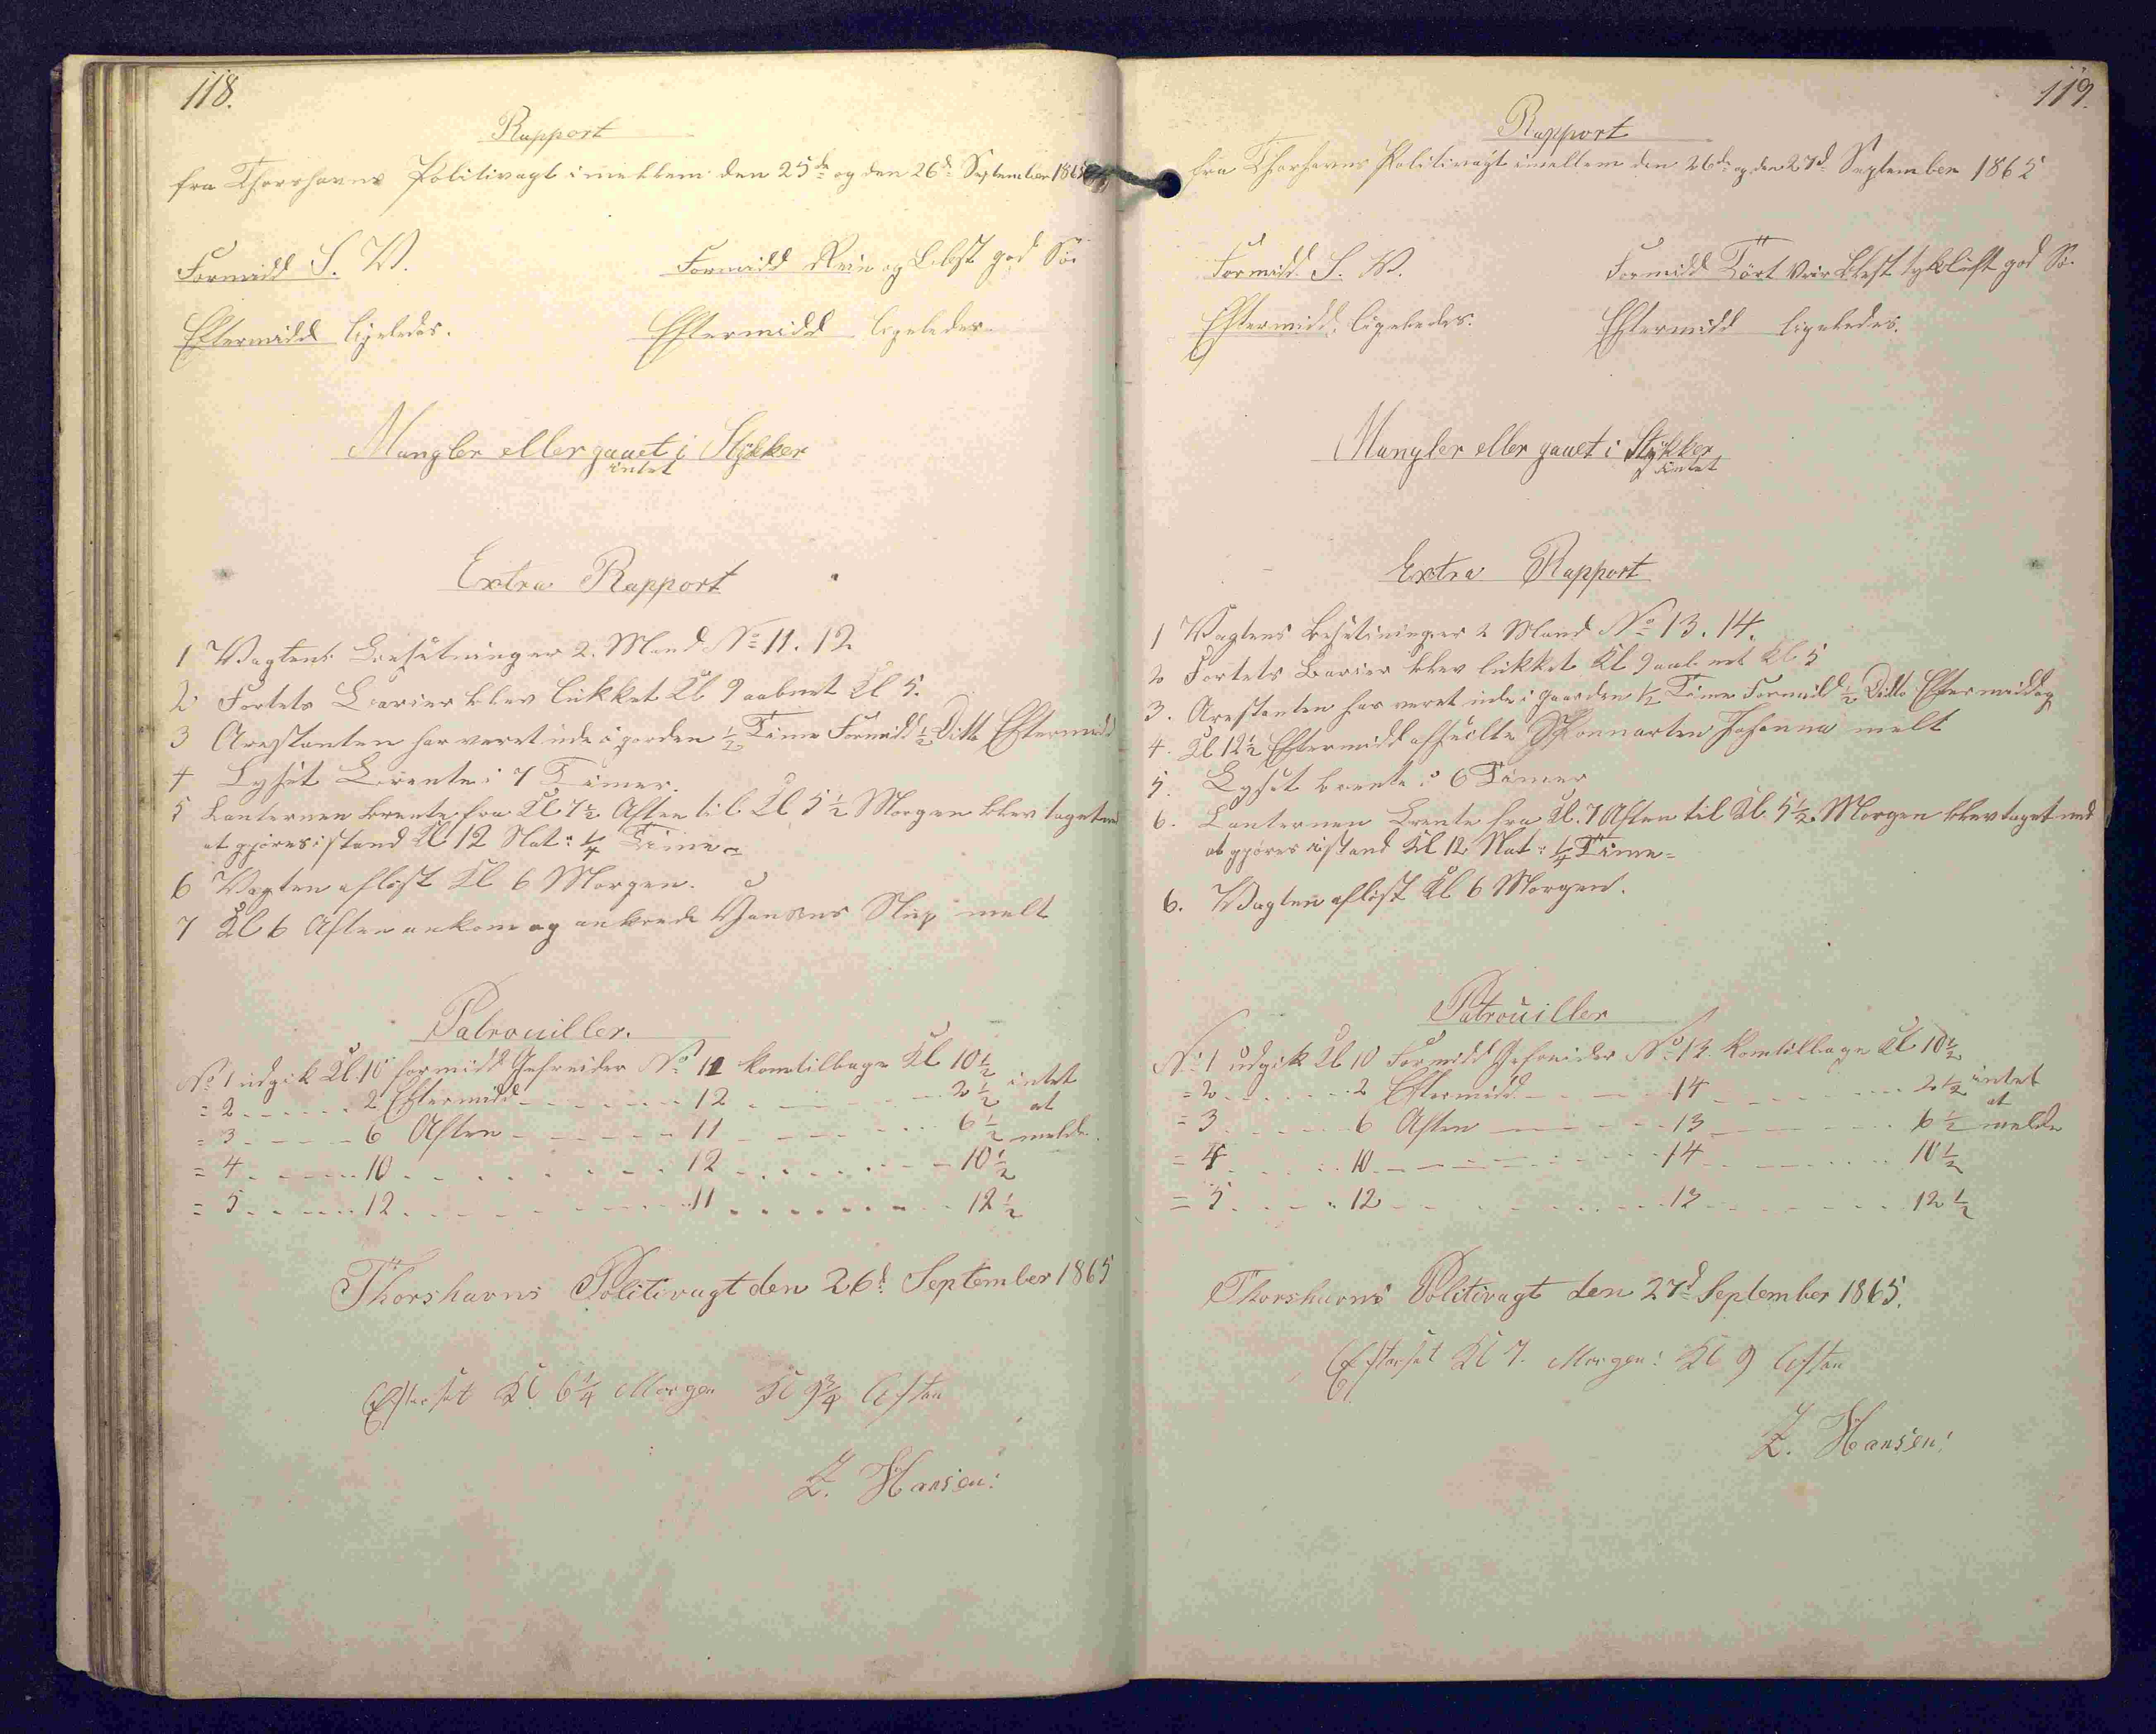 118.
Rapport
fra Thorshavns Politivagt imellem den 25de og den 26d September 1865
Formidd S. V.
Formidd Rein og Blest god Sö.
Eftermidd ligeledes.
Eftermidd ligeledes.
Mangler eller gaaet i Stÿkker
intet
Extra Rapport
1 Vagtens Besetning er 2. Mand No 11. 12
2 Fortets Barier blev lükket Kl 9 aabnet Kl 5.
3 Arestanten har veret ude i gorden ½ Time Formidd ½ Ditto Eftermidd
4 Lyset Brente i 7 Timer.
5 Lanternen brente fra Kl 7½ Aften til Kl 5½ Morgen blev taget ned
at gjöres istand Kl 12 Nat: ¼ Time
6 Vagten aflöst Kl 6 Morgen.
7 Kl 6 Aften ankom og ankrede Jansens Slup melt
Patrouiller.
No 1 udgik Kl. 10 formidd Gefreider No 11 kom tilbage Kl 10½
= 2 2 Eftermidd 12 2½ intet
at
= 3 6 Aften 11 6½ melde.
= 4 10 12 10½
= 5 12 11 12½
Thorshavns Politivagt den 26d September 1865
Efterset Kl 6¼ Morgen Kl 9¾ Aften
Z. Hansen:
119.
Rapport
fra Thorhavns Politivagt imellem den 26de og den 27d September 1865
Formidd. S. W.
Formidd Tört Veir Blest tykluft god Sö.
Eftermidd. ligeledes.
Eftermidd ligeledes.
Mangler eller gaaet i Stÿkker
intet
Extra Rapport
1 Vagtens Besetning er 2 Mand No 13. 14.
2 Fortets Barier blev lükket Kl 9 aabnet Kl 5
3. Arestanten har veret ude i gaarden ½ Time Formidd ½ Ditto Eftermiddag
4. Kl 12½ Eftermidd afseilte Skonnarten Johanna melt
5. Lyset brente i 6 Timer
6. Lanternen Brente fra Kl. 7 Aften til Kl. 5½ Morgen blev taget ned
at gjöres istand Kl 12 Nat: ¼ Time
6. Vagten aflöst Kl 6 Morgen.
Patrouiller
No 1 udgik Kl 10 Formidd Gefreider No 13. kom tilbage Kl 10½
= 2 2 Eftermidd 14 2½ intet
at
= 3 6 Aften 13 6½ melde
= 4 10 14 10½
= 5 12 13 12½
Thorshavns Politivagt den 27d September 1865.
Efterset Kl 7. Morgen: Kl 9 Aften
Z. Hansen: